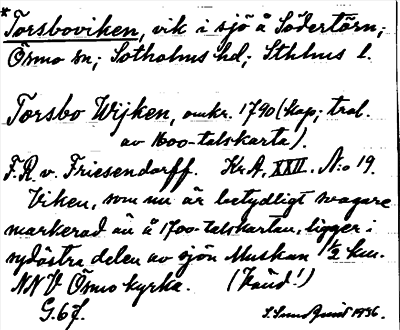 * Torsboviken, vik i sjö å Södertörn;
Ösmo sn; Sotholms hd; Sthlms l.
Torsbo Wijken, omkr. 1790 (kop; trol.
av 1600-talskarta).
F. R. v. Friesendorff. Kr.A. XXII. N:o 19.
Viken, som nu är betydligt svagare
markerad än å 1700-talskartan, ligger i
sydöstra delen av sjön Muskan 1/2 km.
NNV Ösmo kyrka. (Känd!)
G. 67. 1936.